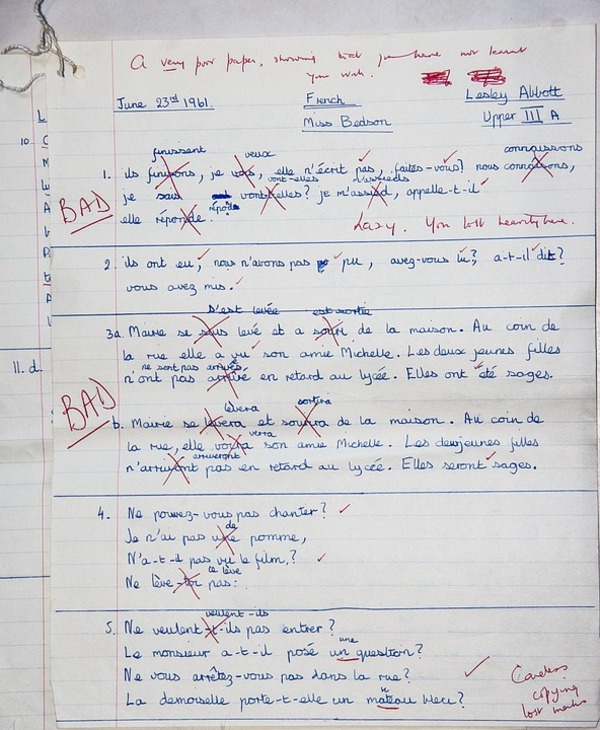 A very poor paper, showing that you have not learnt
your work.
June 23rd 1961.
French
Lesley Abbott
Miss Bedson
Upper III A
finissent
veux
connaissons
1. ils finissons, je vois, elle n'écrit pas, faites-vous? nous connaisons,
vont-elles
m'assieds
BAD
je sais vont-t-elles? je m'assied, appelle-t-il
répond
elle réponde.
Lazy. You lost heavily here.
2. ils ont eu, nous n'avons pas pu, avez-vous lu? a-t-il dit?
vous avez mis.
s'est levée
est sortie
3a. Marie se suis levé et a sorti de la maison. Au coin de
la rue elle a vu son amie Michelle. Les deux jeunes filles
ne sont pas arrivées
n'ont pas arrivé en retard au lycée. Elles ont été sages.
BAD
lèvera
sortira
b. Marie se levera et sortira de la maison. Au coin de
la rue, elle voira son amie Michelle. Les deux jeunes filles
verra
arriveront
n'arriyont pas en retard au lycée. Elles seront sages.
4. Ne pouvez-vous pas chanter?
de
Je n'ai pas une pomme,
N'a-t-il pas vu le film?
te lève
Ne lève-toi pas:
veulent-ils
5. Ne veulent-t-ils pas entrer?
une
Le monsieur a-t-il posé un question?
Ne vous arrêtez-vous pas dans la rue?
La demoiselle porte-t-elle un mateau bleu?
Careless
copying
lost marks
10
L
C
M
W
A
V
P
11. d.